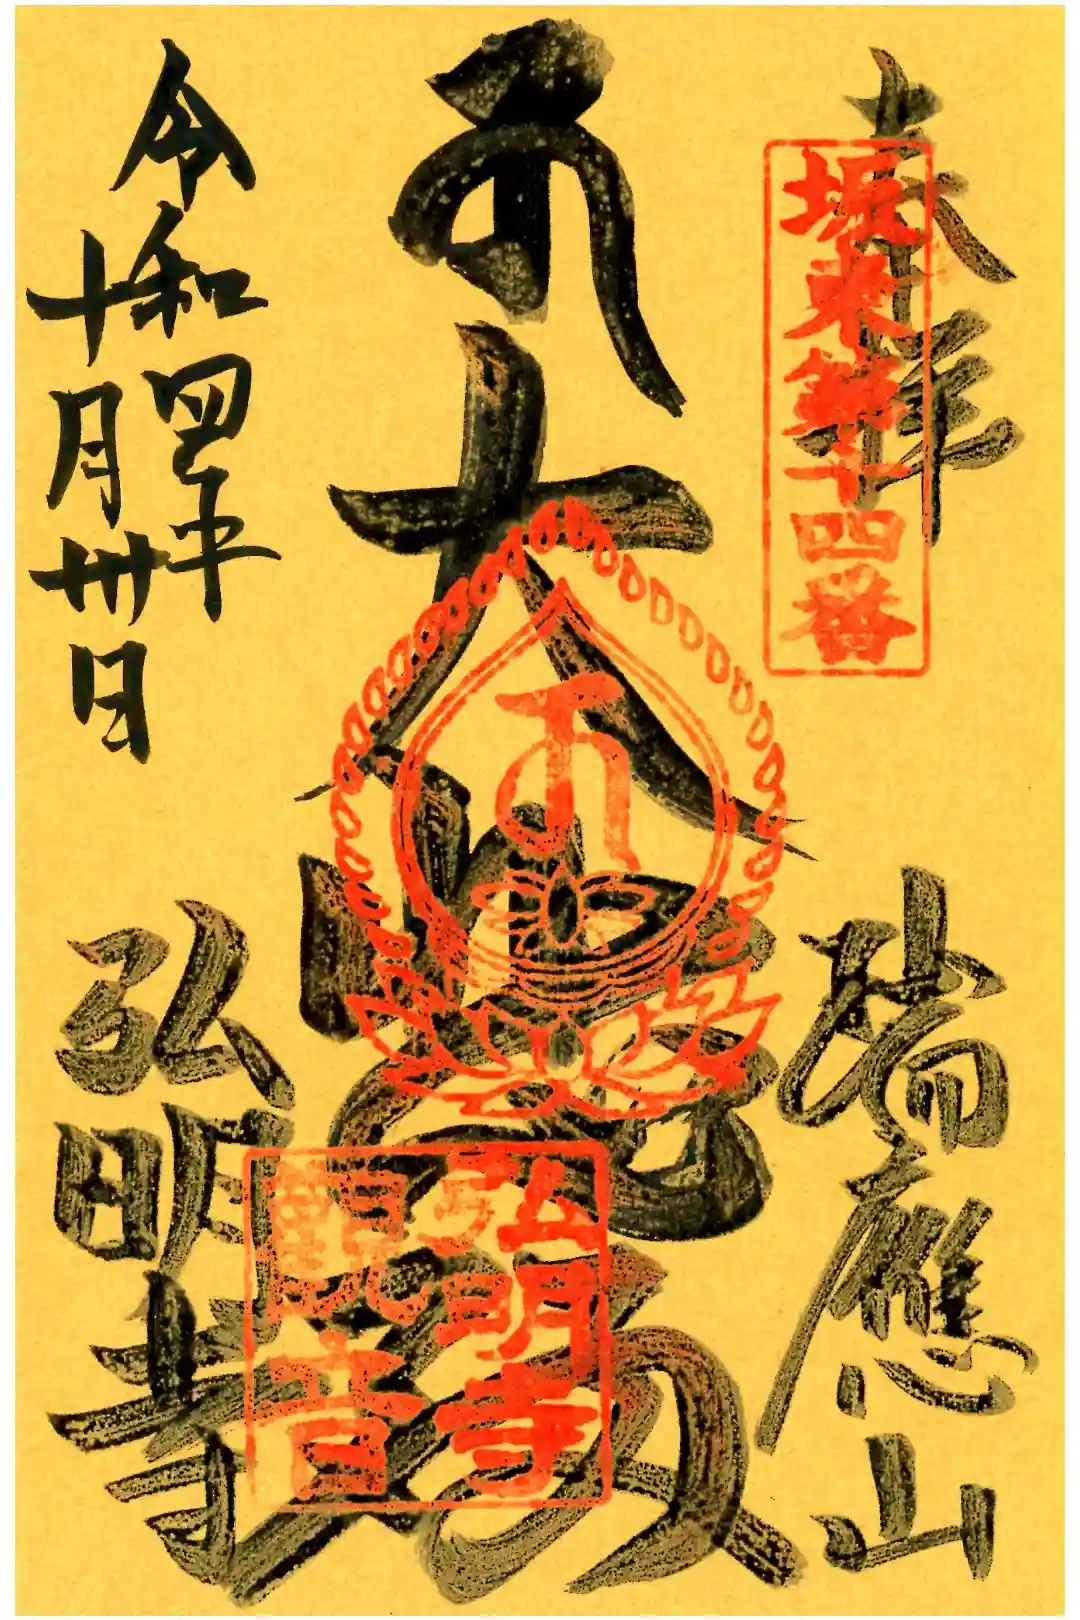 奉拝
坂東第十四番
瑞應山
大悲殿
弘明寺
観音
令和四年
十月卅日
弘明寺